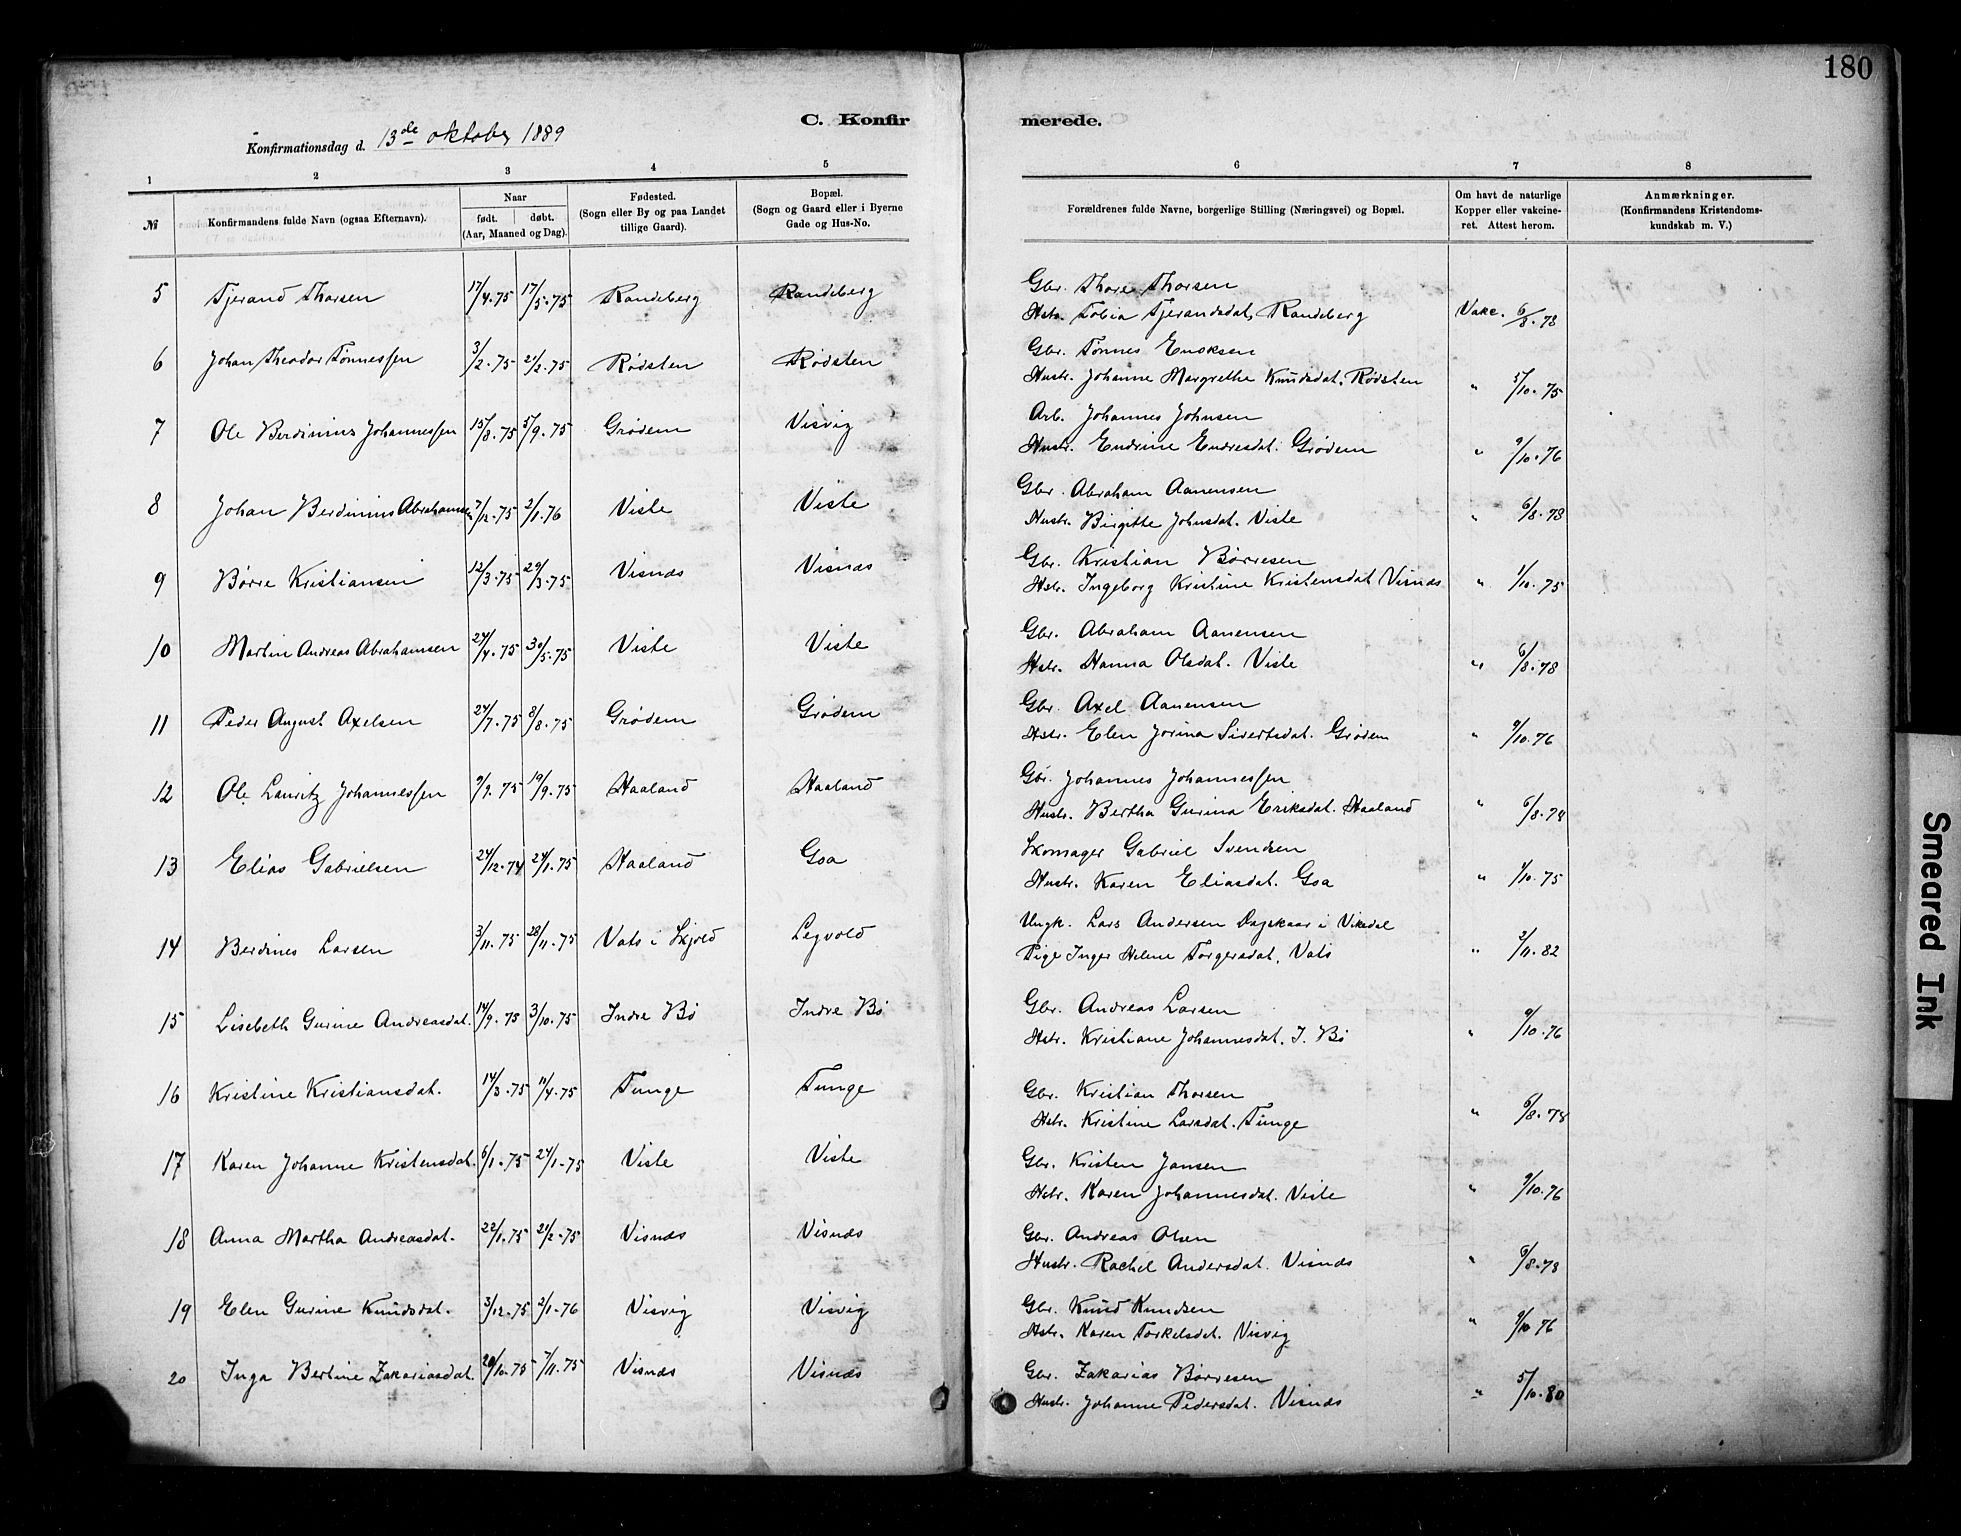 180
C. Konfirmerede.
Konfirmationsdag d. 13de oktober 1889
1 2 3 4 5 6 7 8
№ Konfirmandens fulde Navn (ogsaa Efternavn). Naar født. døbt. (Aar, Maaned og Dag). Fødested. (Sogn eller By og paa Landet tillige Gaard). Bopæl. (Sogn og Gaard eller i Byerne Gade og Hus-No. Forældrenes fulde Navne, borgerlige Stilling (Næringsvei) og Bopæl. Om havt de naturlige Kopper eller vakcineret. Attest herom. Anmærkninger. (Konfirmandens Kristendomskundskab m. V.)
5 Tjerand Thorsen 17/4.75 17/5.75 Randeberg Randeberg Gbr. Thore Thorsen
Hstr. Tobia Tjerandsdat, Randeberg Vakc. 6/8.78
6 Johan Theodor Tønnessen 3/2.75 21/2.75 Rødsten Rødsten Gbr. Tønnes Enoksen
Hustr. Johanne Margrethe Knudsdat. Rødsten " 5/10.75
7 Ole Berdinius Johannessen 15/8.75 5/9.75 Grødem Visvig Arb. Johannes Johnsen
Hustr. Endrine Endresdat. Grødem " 9/10.76
8 Johan Berdinius Abrahamsen 7/12.75 2/1.76 Viste Viste Gbr. Abraham Aanensen
Hustr. Birgitte Johnsdat. Viste " 6/8.78
9 Børre Kristiansen 12/3.75 29/3.75 Visnæs Visnæs Gbr. Kristian Børresen
Hstr. Ingeborg Kristine Kristensdat Visnæs " 1/10.75
10 Martin Andreas Abrahamsen 24/4.75 30/5.75 Viste Viste Gbr. Abraham Aanensen
Hstr. Hanna Olsdat. Viste " 6/8.78
11 Peder August Axelsen 24/7.75 8/8.75 Grødem Grødem Gbr. Axel Aanensen
Hstr. Elen Jorina Sivertsdat. Grødem " 9/10.76
12 Ole Lauritz Johannessen 9/9.75 19/9.75 Haaland Haaland Gbr. Johannes Johannessen
Hustr. Bertha Gurina Eriksdat. Haaland " 6/8.78
13 Elias Gabrielsen 24/12.74 24/1.75 Haaland Goa Skomager Gabriel Svendsen
Hustr. Karen Eliasdat. Goa " 1/10.75
14 Berdines Larsen 3/11.75 28/11.75 Vats i Skjold Legvold Ungk. Lars Andersen Dagskaar i Vikedal
Pige Inger Helene Torgersdat, Vats " 2/11.82
15 Lisebeth Gurine Andreasdat. 14/9.75 3/10.75 Indre Bø Indre Bø Gbr. Andreas Larsen
Hstr. Kristiane Johannesdat. I. Bø " 9/10.76
16 Kristine Kristiansdat. 14/3.75 11/4.75 Tunge Tunge Gbr. Kristian Thorsen
Hstr. Kristine Larsdat. Tunge " 6/8.78
17 Karen Johanne Kristensdat. 6/1.75 24/1.75 Viste Viste Gbr. Kristen Jansen
Hstr. Karen Johannesdat. Viste " 9/10.76
18 Anna Martha Andreasdat. 22/1.75 21/2.75 Visnæs Visnæs Gbr. Andreas Olsen
Hustr. Rachel Andersdat. Visnæs " 6/8.78
19 Elen Gurine Knudsdat. 3/12.75 2/1.76 Visvig Visvig Gbr. Knud Knudsen
Hstr. Karen Torkelsdat. Visvig " 9/10 76
20 Inga Bertine Zakariasdat. 20/10.75 7/11.75 Visnæs Visnæs Gbr. Zakarias Børresen
Hustr. Johanne Pedersdat. Visnæs " 5/10.80
Smeared Ink